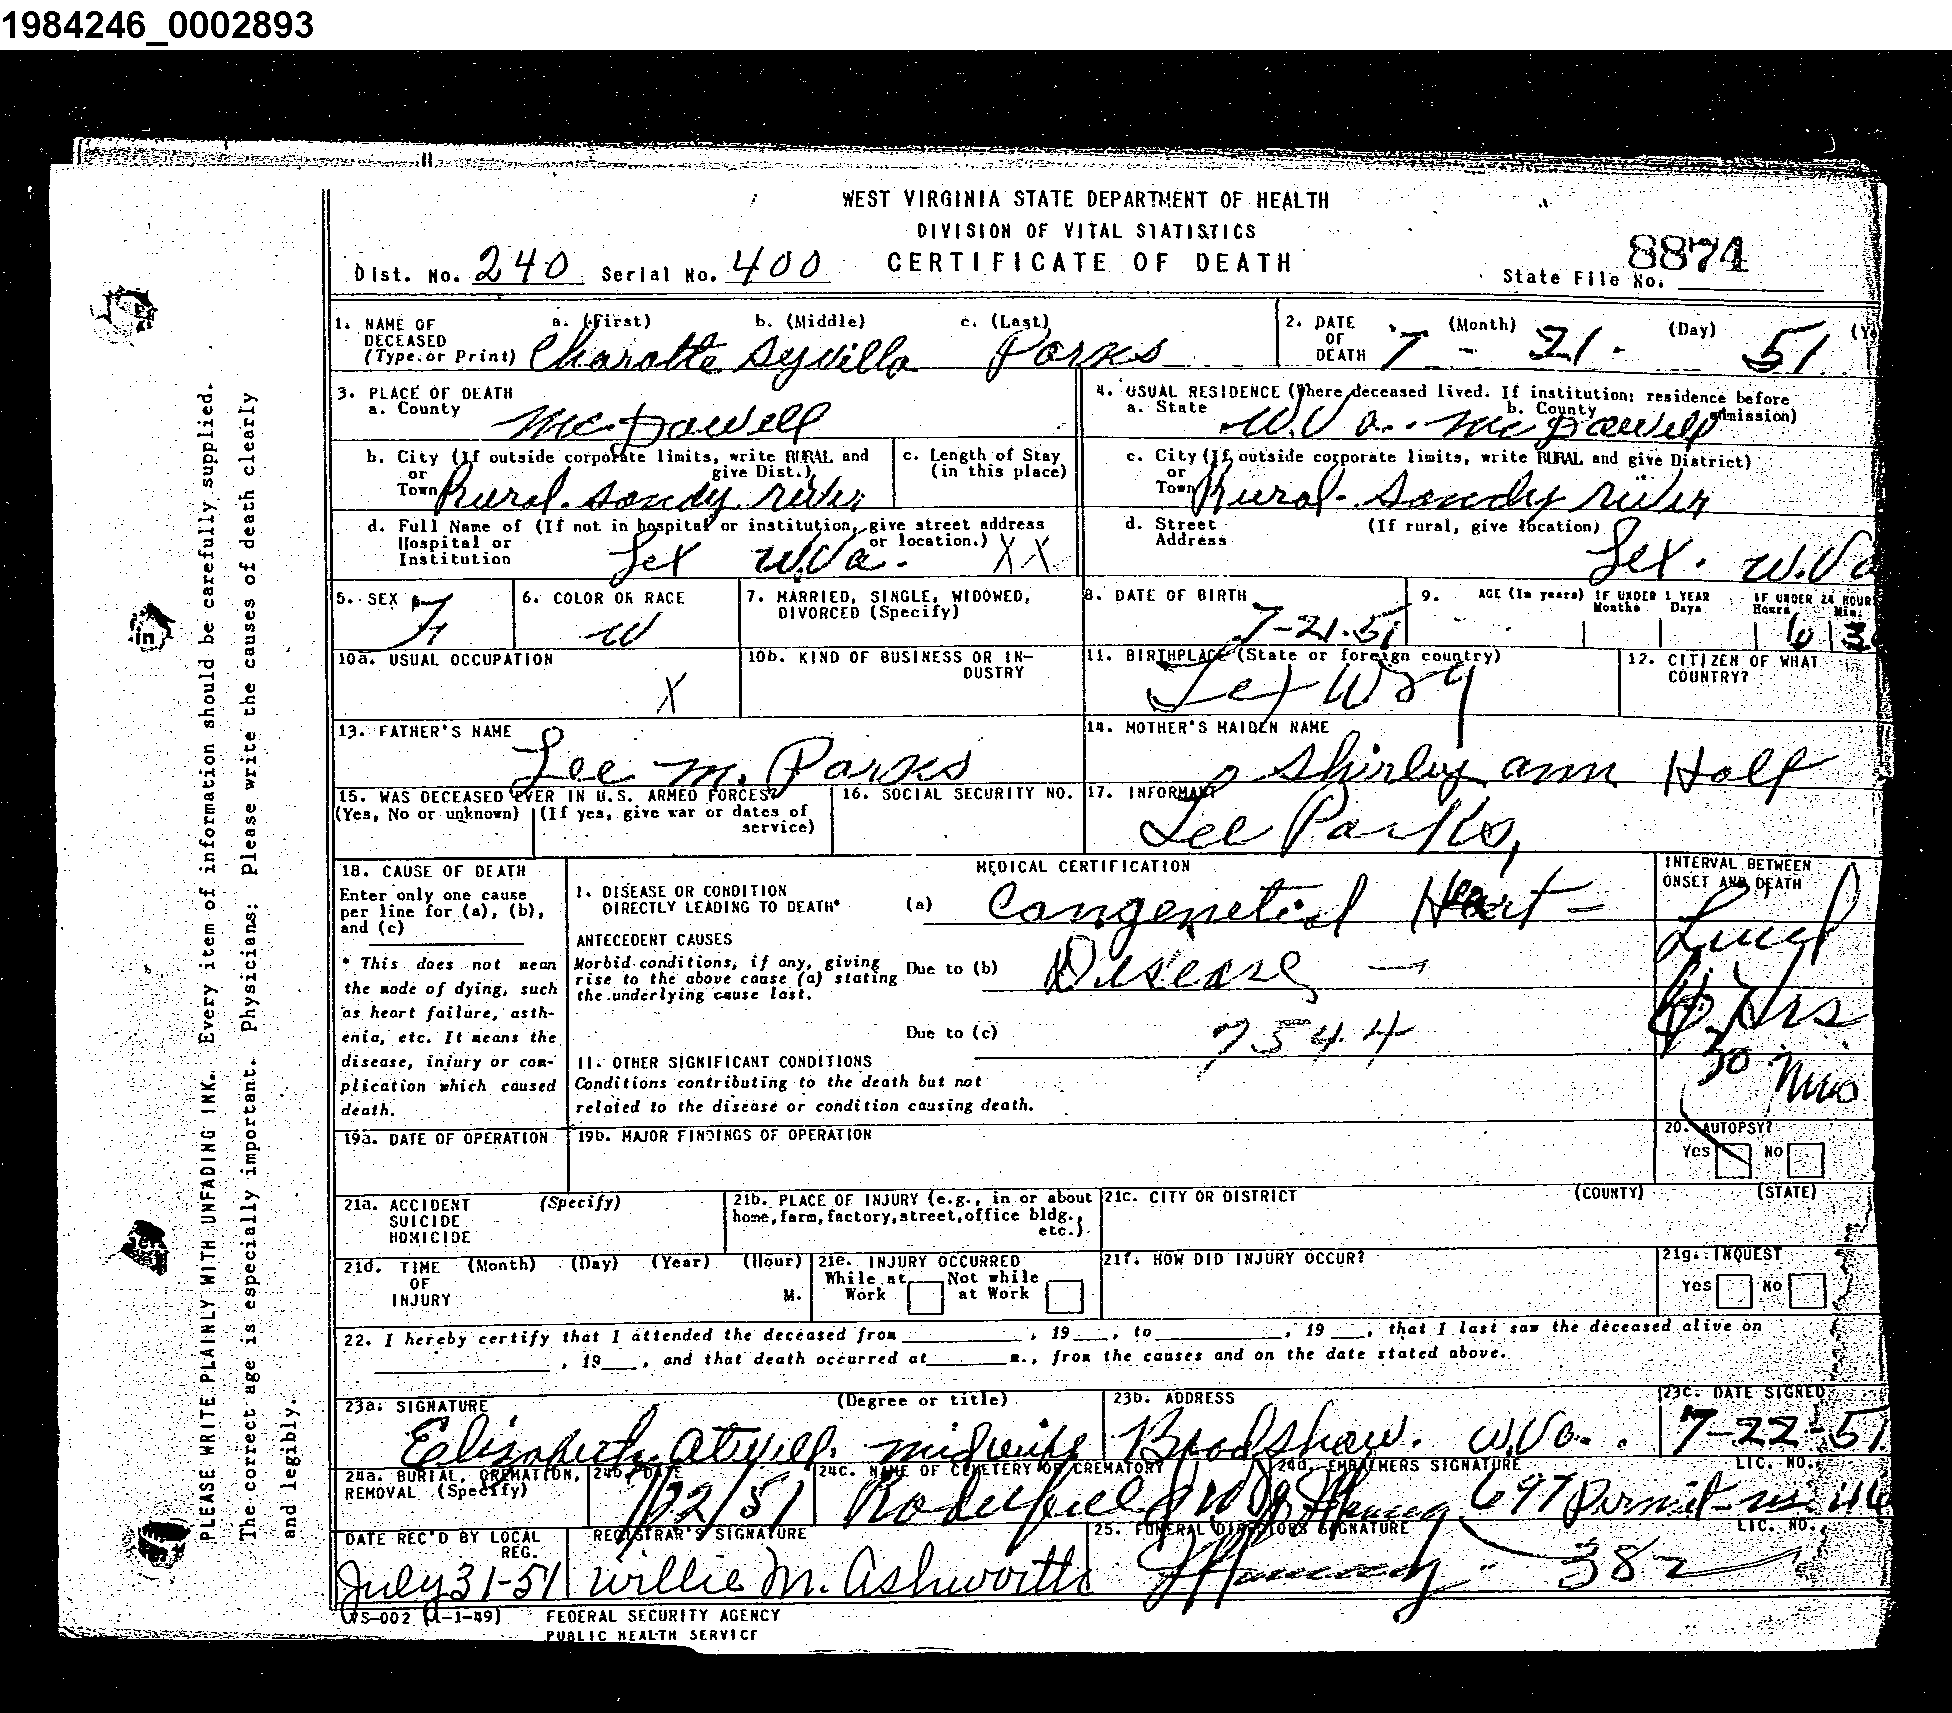 1984246_0002893
WEST VIRGINIA STATE DEPARTMENT OF HEALTH
DIVISION OF VITAL STATISTICS
Dist. No. 240 Serial No. 400 CERTIFICATE OF DEATH
8874
State File No.
1. NAME OF DECEASED (Type or Print) a. (First) b. (Middle) c. (Last)
Charotte Syvilla Parks
2. DATE OF DEATH (Month) (Day)
7 - 21 - 51
3. PLACE OF DEATH
a. County
McDowell
4. USUAL RESIDENCE (Where deceased lived. If institution: residence before admission)
a. State b. County
W.Va. McDowell
b. City (If outside corporate limits, write RURAL and give Dist.)
or Town Rural. Sandy river
c. Length of Stay (in this place)
c. City (If outside corporate limits, write RURAL and give District)
or Town Rural- Sandy river
d. Full Name of (If not in hospital or institution, give street address or location.)
Hospital or Institution
Lex W.Va. XX
d. Street Address (If rural, give location)
Lex. W.Va
5. SEX F
6. COLOR OR RACE W
7. MARRIED, SINGLE, WIDOWED, DIVORCED (Specify)
8. DATE OF BIRTH 7-21-51
9. AGE (In years) IF UNDER 1 YEAR Months Days IF UNDER 24 HOURS Hours Min.
6
10a. USUAL OCCUPATION
X
10b. KIND OF BUSINESS OR INDUSTRY
11. BIRTHPLACE (State or foreign country)
Lex
12. CITIZEN OF WHAT COUNTRY?
13. FATHER'S NAME
Lee M. Parks
14. MOTHER'S MAIDEN NAME
Shirley ann Holf
15. WAS DECEASED EVER IN U.S. ARMED FORCES?
(Yes, No or unknown) (If yes, give war or dates of service)
16. SOCIAL SECURITY NO.
17. INFORMANT
Lee Parks,
18. CAUSE OF DEATH
Enter only one cause per line for (a), (b), and (c)
* This does not mean the mode of dying, such as heart failure, asthenia, etc. It means the disease, injury or complication which caused death.
MEDICAL CERTIFICATION
1. DISEASE OR CONDITION DIRECTLY LEADING TO DEATH* (a) Congenetial Heart -
ANTECEDENT CAUSES
Morbid conditions, if any, giving rise to the above cause (a) stating the underlying cause last.
Due to (b) Disease -
Due to (c) 7544
II. OTHER SIGNIFICANT CONDITIONS
Conditions contributing to the death but not related to the disease or condition causing death.
INTERVAL BETWEEN ONSET AND DEATH
6 Hrs
30
19a. DATE OF OPERATION
19b. MAJOR FINDINGS OF OPERATION
20. AUTOPSY?
Yes No
21a. ACCIDENT SUICIDE HOMICIDE (Specify)
21b. PLACE OF INJURY (e.g., in or about home, farm, factory, street, office bldg., etc.)
21c. CITY OR DISTRICT (COUNTY) (STATE)
21d. TIME OF INJURY (Month) (Day) (Year) (Hour) M.
21e. INJURY OCCURRED
While at Work Not while at Work
21f. HOW DID INJURY OCCUR?
21g. INQUEST
Yes No
22. I hereby certify that I attended the deceased from , 19 , to , 19 , that I last saw the deceased alive on
, 19 , and that death occurred at m., from the causes and on the date stated above.
23a. SIGNATURE (Degree or title)
Elizabeth Atwell midwife
23b. ADDRESS
Bradshaw. W.Va.
23c. DATE SIGNED
7-22-51
24a. BURIAL, CREMATION, REMOVAL (Specify)
24b. DATE
7/22/51
24c. NAME OF CEMETERY OR CREMATORY
Roderfield
24d. EMBALMERS SIGNATURE LIC. NO.
697 Permit
DATE REC'D BY LOCAL REG.
July 31-51
REGISTRAR'S SIGNATURE
Willie M. Ashworth
25. FUNERAL DIRECTORS SIGNATURE LIC. NO.
382
VS-002 (1-1-49) FEDERAL SECURITY AGENCY
PUBLIC HEALTH SERVICE
PLEASE WRITE PLAINLY WITH UNFADING INK. Every item of information should be carefully supplied.
The correct age is especially important. Physicians: Please write the causes of death clearly
and legibly.